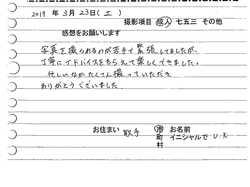 2019年 3月 23日(土)
撮影項目 成人 七五三 その他
感想をお願いします
写真を撮られるのが苦手で緊張してましたが、
丁寧にアドバイスをもらえて楽しくできました。
忙しいなかたくさん撮っていただき
ありがとうございました
お住まい 取手 市町村 お名前 イニシャルで U.K